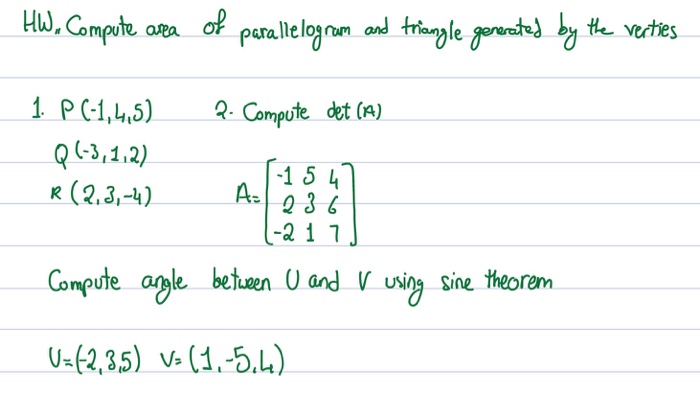 HW. Compute area of parallelogram and triangle generated by the verties
1. P(-1,4,5) 2. Compute det(A)
Q(-3,1,2)
R(2,3,-4) A=[-1 5 4
2 3 6
-2 1 7]
Compute angle between U and V using sine theorem
U=(-2,3,5) V=(1,-5,4)